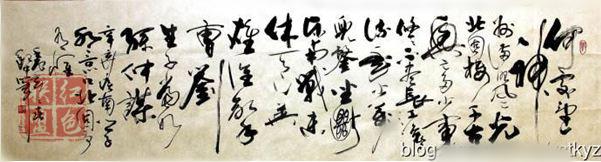 何处望
神
州满眼风光
北固楼千古
兴亡多少事
悠悠不尽长江滚
滚流年少万
兜鍪坐断
东南战未
休天下英
雄谁敌手
曹刘
生子当如
孙仲谋
辛弃疾南乡子
登京口北固亭
有怀
红色
blog
tkyz